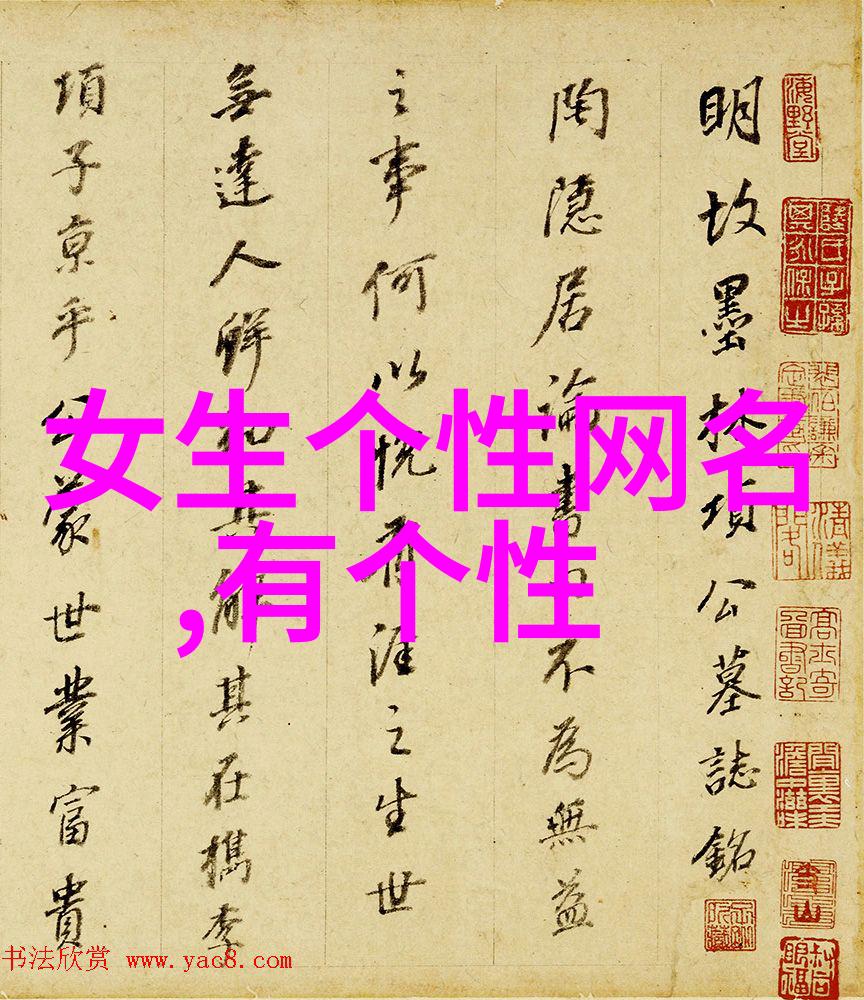 女生个性网名
,有个性
明故墨林項公墓誌銘
陶隱居論書不為無益
之事何以悅有涯之生世
無達人鮮其解其在檇李
項子京乎公蒙世業富貴
海野堂
书法欣赏 www.yac8.com